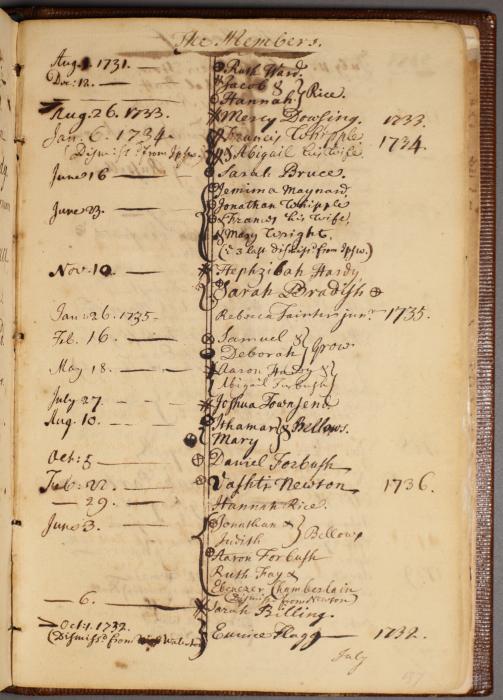 The Members.
Aug. 1 1731. — Ruth Ward.
Dec. 12. — Jacob &
Hannah } Rice.
Aug. 26. 1733. Mercy Dowsing. 1733.
Jan. 6. 1734. Francis Whipple 1734.
Dismiss'd from Ipsw. & Abigail his wife
June 16 — Sarah Bruce.
Jemima Maynard.
June 23. Jonathan Whipple
& Frances his Wife,
& Mary Wright.
(ye 3 last dismiss'd from Ipsw.)
Nov. 10. — Hephzibah Hardy
Sarah Bradish
Jan. 26. 1735 — Rebecca Fainter junr. — 1735.
Feb. 16. — Samuel &
Deborah } Grow
May 18. — Aaron Hardy &
Abigail Forbush
July 27 — Joshua Townsend
Aug. 10. — Ithamar &
Mary } Bellows.
Oct: 5 — Daniel Forbush
Feb: 22. — Vashti Newton 1736.
— 29. — Hannah Rice.
June 3. — Jonathan &
Judith } Bellows
Aaron Forbush
Ruth Fay &
Ebenezer Chamberlain
(Dismiss'd from Newton)
— 6. — Sarah Billing.
Oct. 1. 1732.
(Dismiss'd from Eunice Flagg — 1732.
July